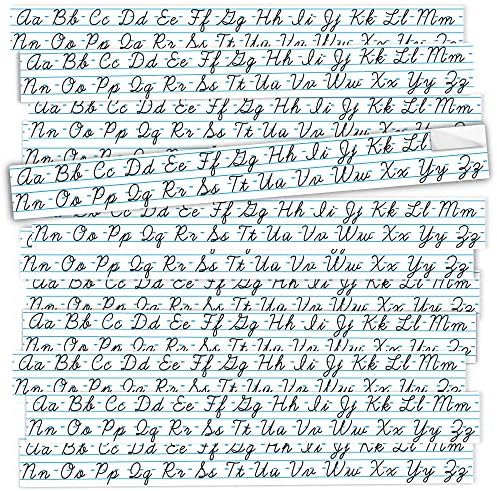 Aa-Bb-Cc-Dd-Ee-Ff-Gg-Hh-Ii-Jj-Kk-Ll-Mm
Nn-Oo-Pp-Qq-Rr-Ss-Tt-Uu-Vv-Ww-Xx-Yy-Zz
Aa-Bb-Cc-Dd-Ee-Ff-Gg-Hh-Ii-Jj-Kk-Ll-Mm
Nn-Oo-Pp-Qq-Rr-Ss-Tt-Uu-Vv-Ww-Xx-Yy-Zz
Aa-Bb-Cc-Dd-Ee-Ff-Gg-Hh-Ii-Jj-Kk-Ll-Mm
Nn-Oo-Pp-Qq-Rr-Ss-Tt-Uu-Vv-Ww-Xx-Yy-Zz
Aa-Bb-Cc-Dd-Ee-Ff-Gg-Hh-Ii-Jj-Kk-Ll-Mm
Nn-Oo-Pp-Qq-Rr-Ss-Tt-Uu-Vv-Ww-Xx-Yy-Zz
Ff-Gg-Hh-Ii-Jj-Kk-Ll-Mm
Aa-Bb-Cc-Dd-Ee-Ff-Gg-Hh-Ii-Jj-Kk-Ll-Mm
Nn-Oo-Pp-Qq-Rr-Ss-Tt-Uu-Vv-Ww-Xx-Yy-Zz
Aa-Bb-Cc-Dd-Ee-Ff-Gg-Hh-Ii-Jj-Kk-Ll-Mm
Nn-Oo-Pp-Qq-Rr-Ss-Tt-Uu-Vv-Ww-Xx-Yy-Zz
Aa-Bb-Cc-Dd-Ee-Ff-Gg-Hh-Ii-Jj-Kk-Ll-Mm
Aa-Bb-Cc-Dd-Ee-Ff-Gg-Hh-Ii-Jj-Kk-Ll-Mm
Nn-Oo-Pp-Qq-Rr-Ss-Tt-Uu-Vv-Ww-Xx-Yy-Zz
Aa-Bb-Cc-Dd-Ee-Ff-Gg-Hh-Ii-Jj-Kk-Ll-Mm
Nn-Oo-Pp-Qq-Rr-Ss-Tt-Uu-Vv-Ww-Xx-Yy-Zz
Aa-Bb-Cc-Dd-Ee-Ff-Gg-Hh-Ii-Jj-Kk-Ll-Mm
Nn-Oo-Pp-Qq-Rr-Ss-Tt-Uu-Vv-Ww-Xx-Yy-Zz